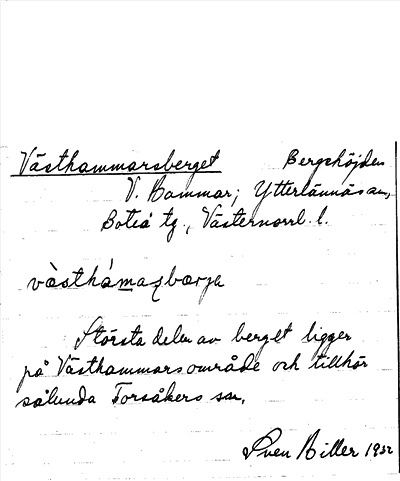 Västhammarsberget Bergshöjden
V. Hammar; Ytterlännäs sn,
Boteå tg., Västernorrl. l.
vàsthámaʂbærja
Största delen av berget ligger
på Västhammarsområde och tillhör
sålunda Torsåkers sn,
Sven Hiller 1932